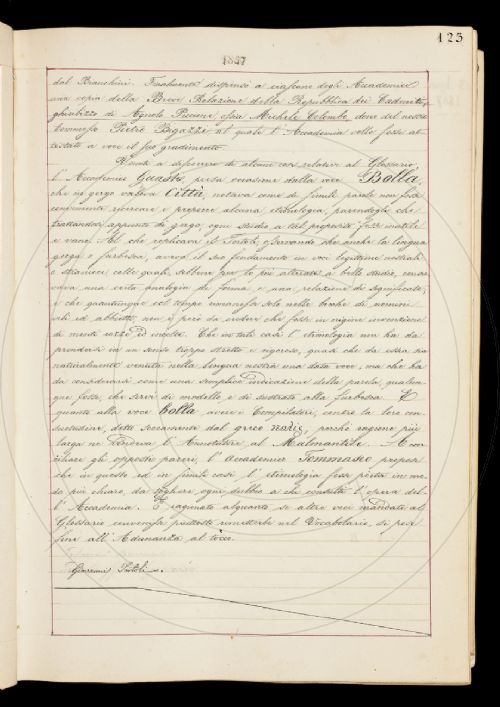 123
1887
dal Bianchini. Finalmente dispensò a ciascuno degli Accademici
una copia della Breve Relazione della Repubblica dei Cadmiti,
di Agnolo Piccone, ossia Michele Colombo, dono del nostro
Pietro Bigazzi al quale l'Accademia volle fosse at-
testato a voce il suo gradimento.
Venuti a discorrere di alcune cose relative al Glossario,
l'Accademico Guasti, presa occasione dalla voce Bolla,
che in gergo valeva Città, notava come di simili parole non fosse
conveniente ricercare e proporre alcuna etimologia, parendogli che
trattandosi appunto di gergo, ogni studio a tal proposito fosse inutile
e vano. Al che replicava il Tortoli, osservando che anche la lingua
gerga o furbesca, aveva il suo fondamento in voci legittime nostrali
o straniere colle quali, sebbene per lo più alterate a bello studio, conser
vava una certa analogia di forma, o una relazione di significato;
e che quantunque col tempo rimanesse solo nelle bocche di uomini
vili ed abbietti, non è però da credere che fosse in origine invenzione
di menti rozze ed incolte. Che in tali casi l'etimologia non ha da
prendersi in un senso troppo stretto e rigoroso, quasi che da essa sia
naturalmente venuta nella lingua nostra una data voce, ma che ha
da considerarsi come una semplice indicazione della parola, qualun
que fosse, che servì di modello e di sustrato alla furbesca. E
quanto alla voce Bolla, avere i Compilatori, contro la loro con-
suetudine, detto seccamente dal greco πόλις, perchè ragione più
larga ne rendeva l'Annotatore al Malmantile. A con
ciliare gli opposti pareri, l'Accademico Tommaseo propose
che in questo ed in simili casi l'etimologia fosse posta in mo-
do più chiaro, da togliere ogni dubbio a chi consulta l'opera del-
l'Accademia. E ragionato alquanto se altre voci mandate al
Glossario convenisse piuttosto rimetterle nel Vocabolario, si pose
fine all'Adunanza al tocco.
Giovanni Tortoli